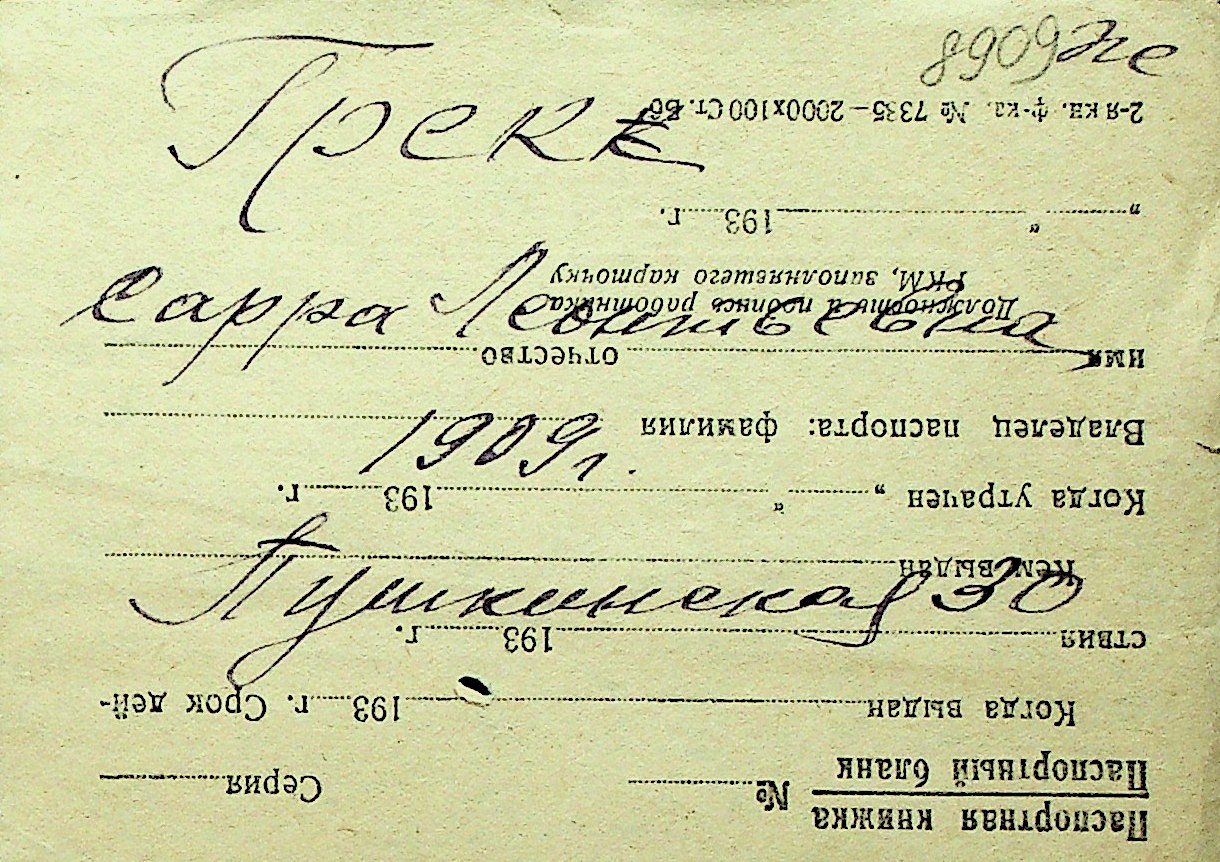 8909
Грек
Сарра Леонтьевна
1909 г.
Пушкинская 30
Паспортная книжка
Паспортный бланк
№ Серия
Когда выдан 193 г. Срок дей-
ствия 193 г.
Кем выдан
Когда утрачен „ “ 193 г.
Владелец паспорта: фамилия
имя отчество
Должность и подпись работника
РКМ, заполнявшего карточку
„ “ 193 г.
2-я кн. ф-ка. № 7335—2000х100 Ст.